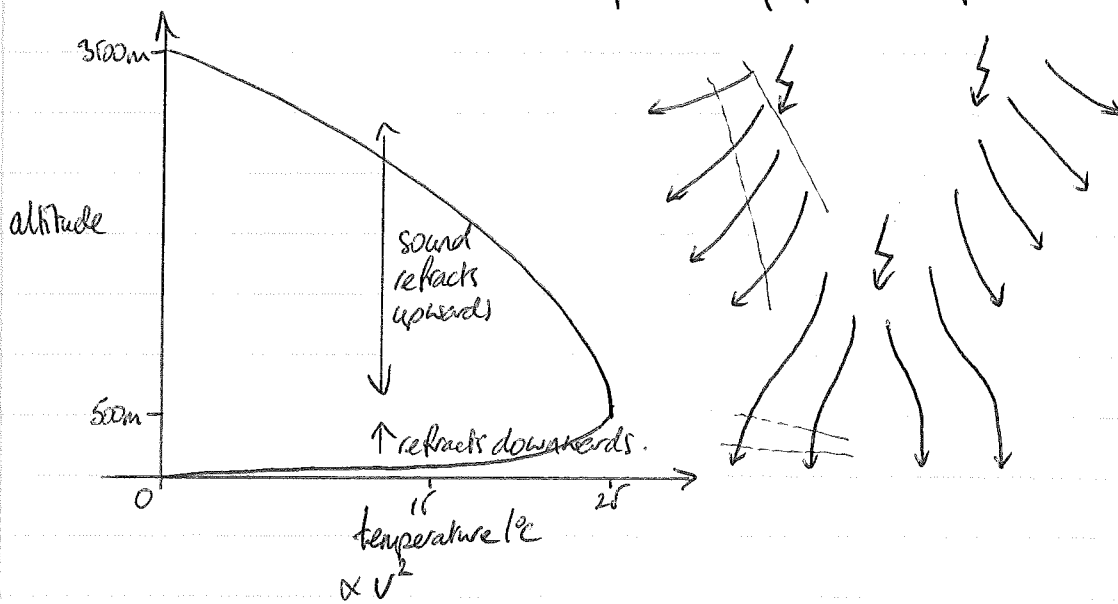 3500m
altitude
sound
refracts
upwards
500m
↑ refracts downwards.
0
15
25
temperature/°C
∝ v²